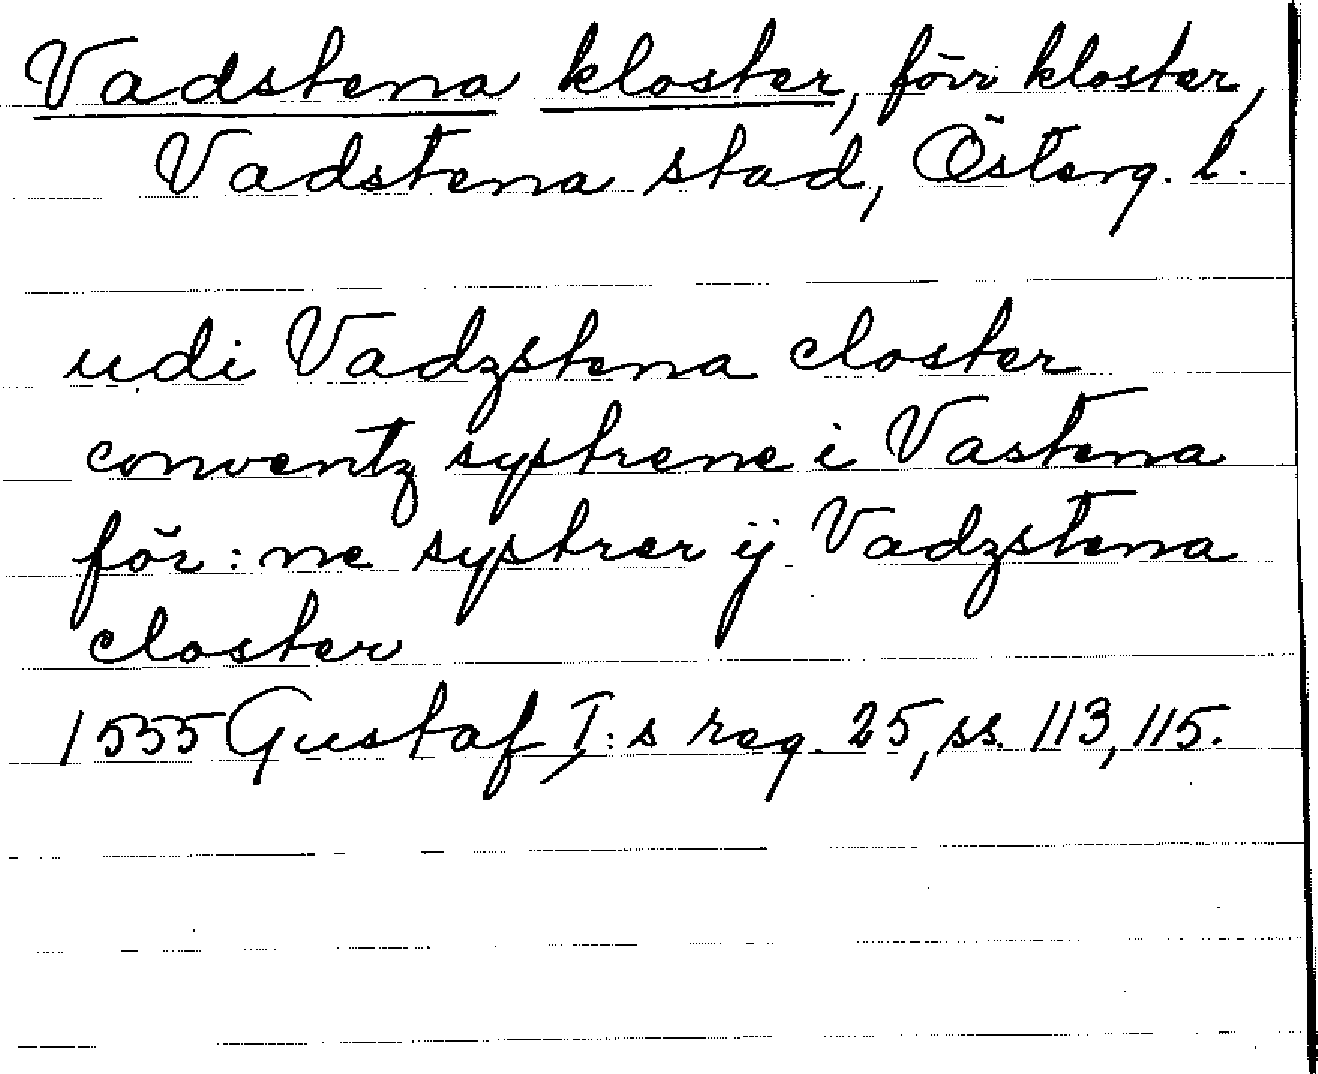 Vadstena kloster, förr kloster,
Vadstena stad, Österg. l.
udi Vadzstena closter
conventz systrene i Vastena
för: ne systrer ij Vadzstena
closter
1555 Gustaf I:s reg. 25, ss. 113, 115.